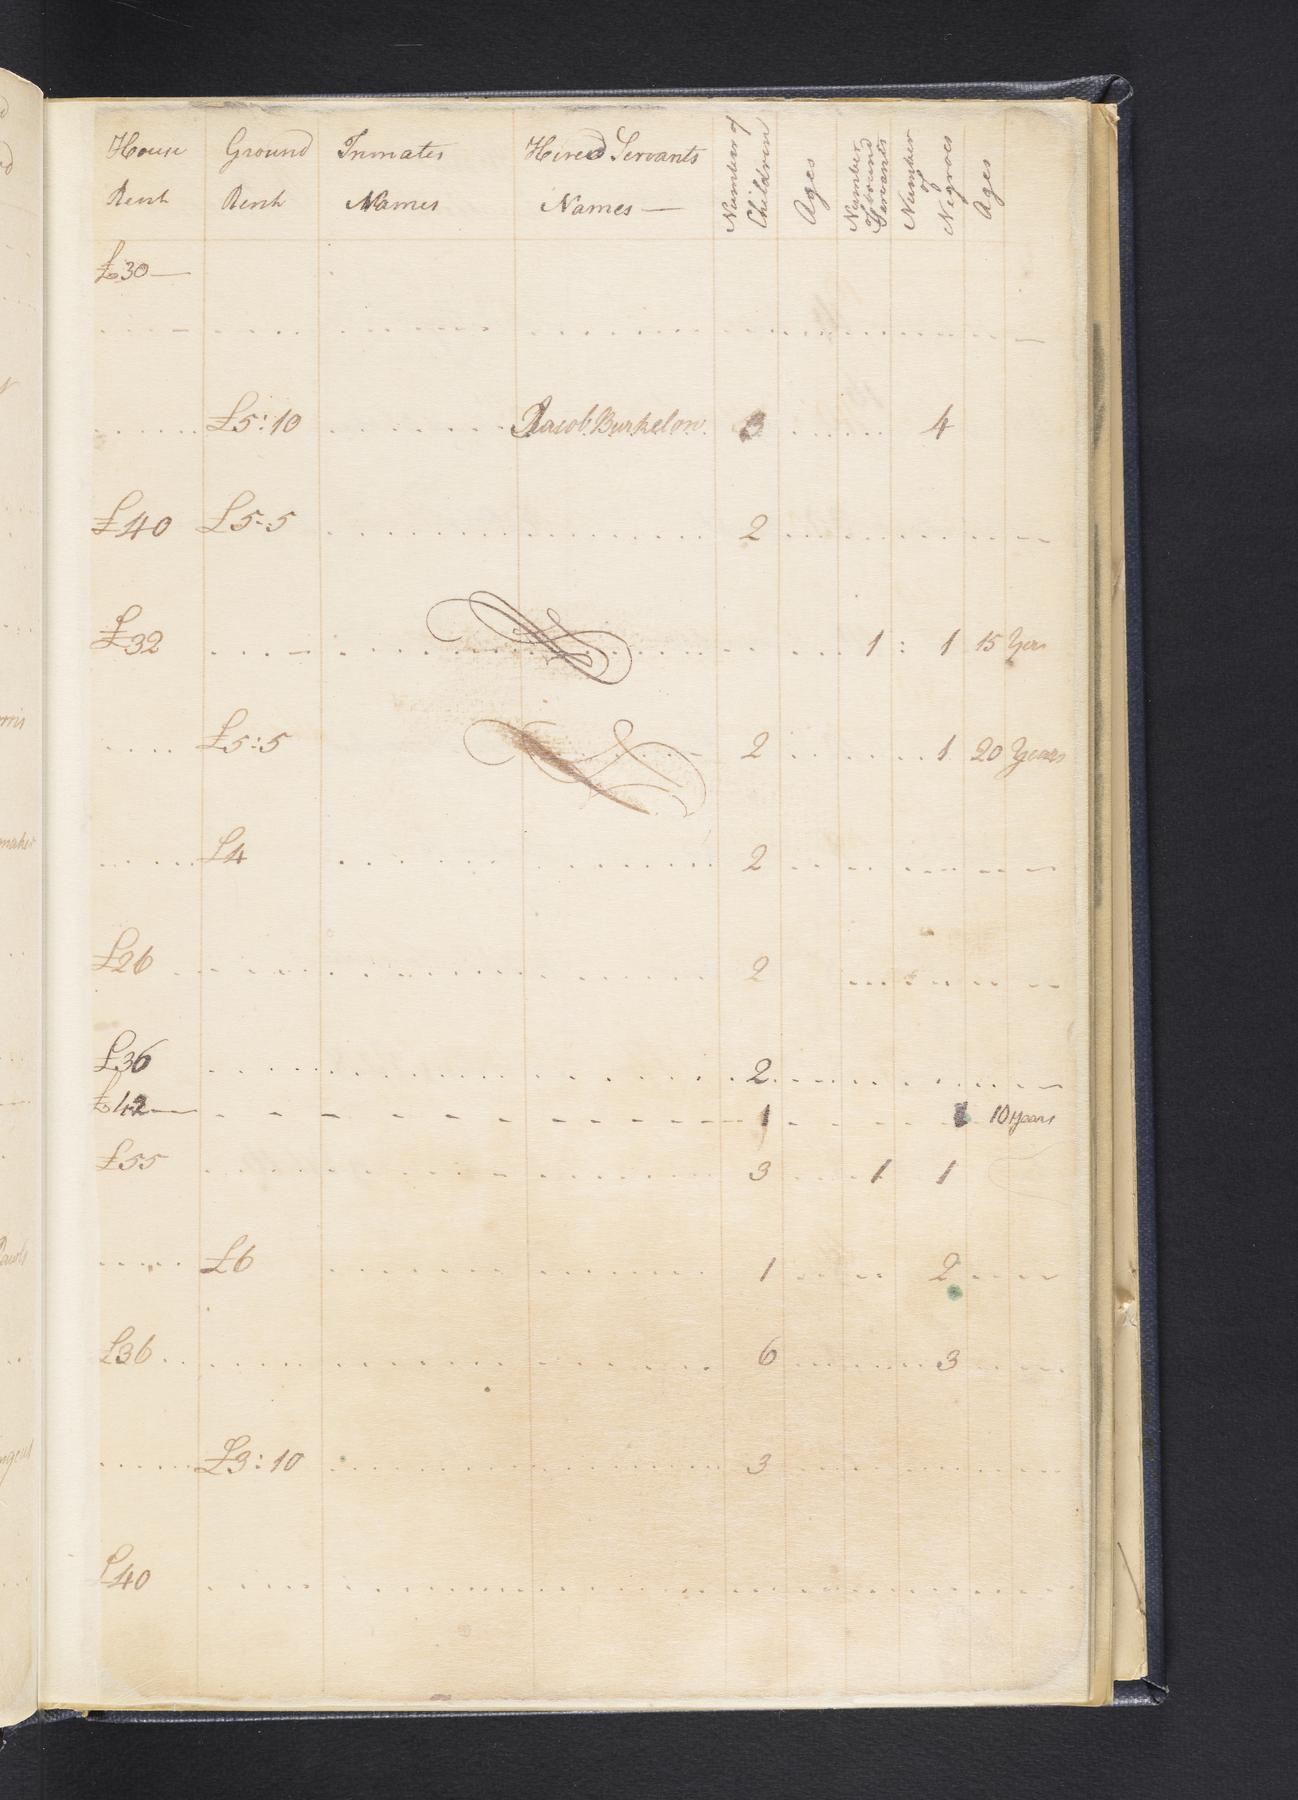 House Rent | Ground Rent | Inmates Names | Hired Servants Names — | Number of Children | Ages | Number of bound Servants | Number of Negroes | Ages
£30 —
£5:10 Jacob Burkelow 3 4
£40 £5:5 2
£32 1 : 1 15 Yers
£5:5 2 1 20 Years
£4 2
£26 2
£36 2
£42 — 1 1 10 years
£55 3 1 1
£6 1 2
£36 6 3
£3:10 3
£40